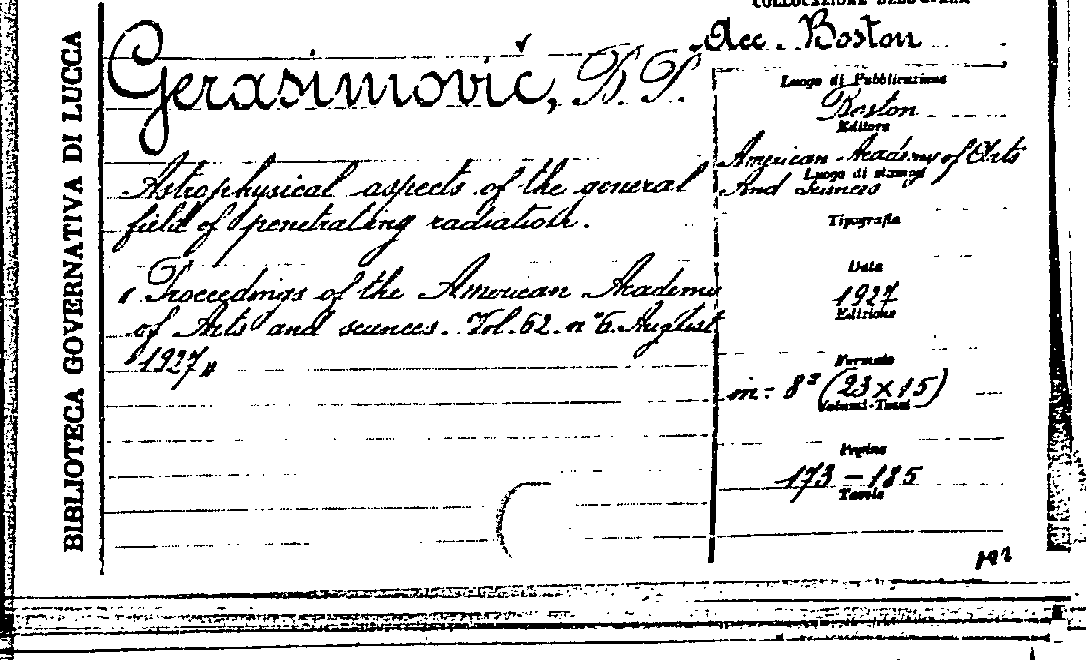 BIBLIOTECA GOVERNATIVA DI LUCCA
Gerasimovič, B. P.
Astrophysical aspects of the general
field of penetrating radiation.
"Proceedings of the American Academy
of Arts and sciences. Vol. 62. n° 6. Auglist
1927"
COLLOCAZIONE DELL'OPERA
Acc. Boston
Luogo di Pubblicazione
Boston
Editore
American Academy of Arts
Luogo di stampa
And Sciences
Tipografia
Data
1927
Edizione
Formato
in-8° (23x15)
Volumi-Tomi
Pagine
173-185
Tavole